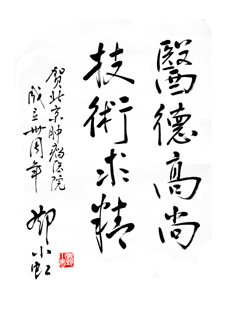 醫德高尚
技術求精
賀北京肿瘤医院
成立卅周年
邓小虹